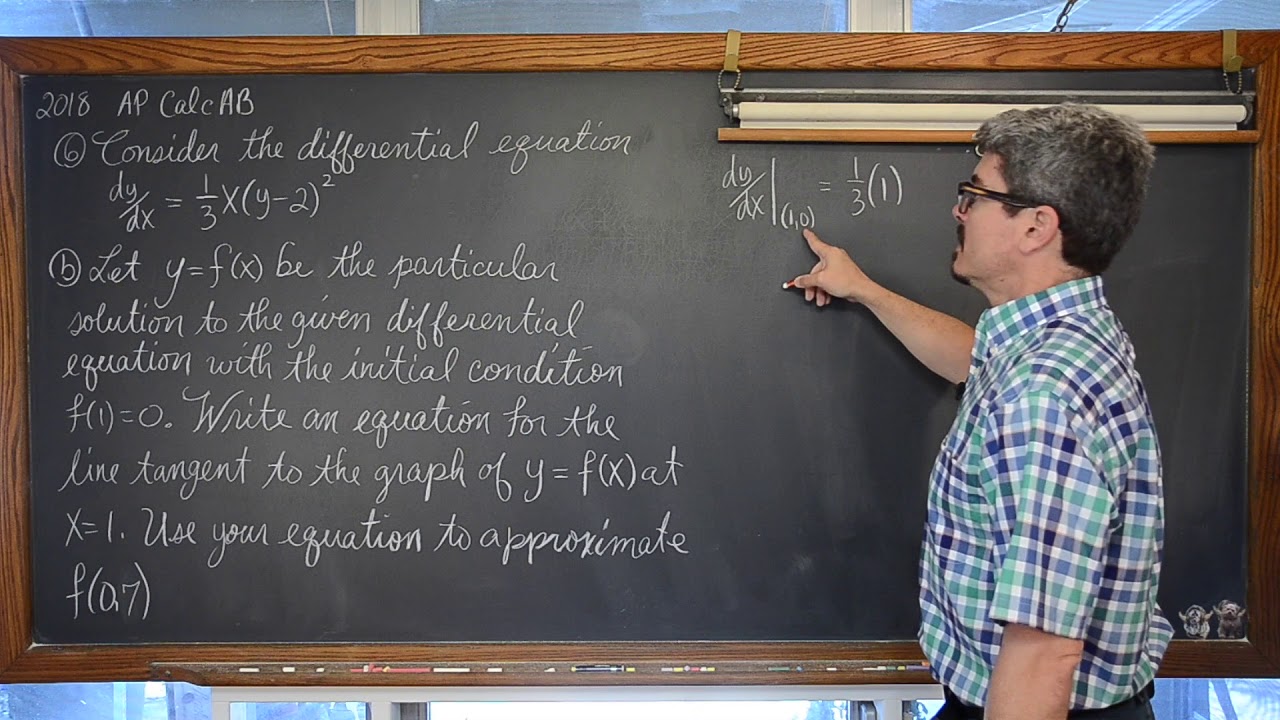 2018 AP Calc AB
⑥ Consider the differential equation
dy/dx = 1/3 X(y-2)²
ⓑ Let y=f(x) be the particular
solution to the given differential
equation with the initial condition
f(1)=0. Write an equation for the
line tangent to the graph of y=f(x) at
X=1. Use your equation to approximate
f(0.7)
dy/dx |(1,0) = 1/3 (1)